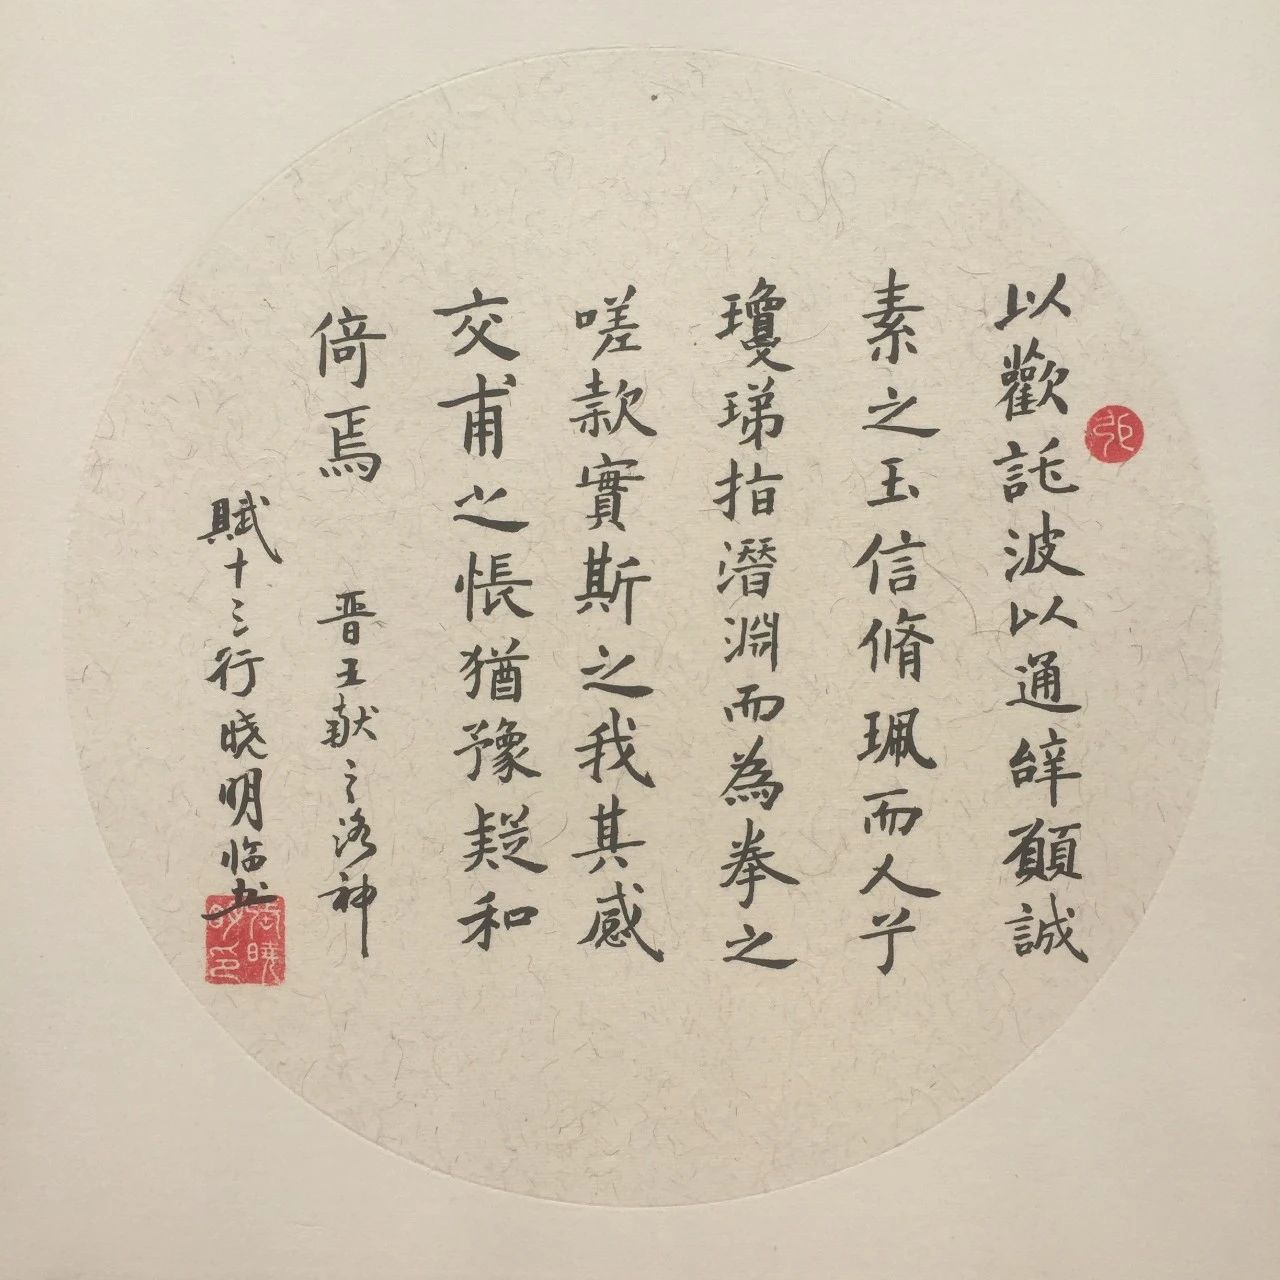 以歡託波以通辭願誠
素之玉信脩珮而人兮
瓊珶指潛淵而為拳之
嗟款實斯之我其感
交甫之悵猶豫疑和
倚焉 晋王献之洛神
賦十三行晓明临书